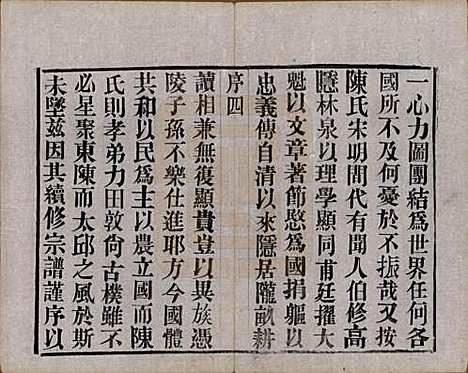 一心力圖團結爲世界任何各
國所不及何憂於不振哉又按
陳氏宋明間代有聞人伯修高
隱林泉以理學顯同甫廷擢大
魁以文章著節愍爲國捐軀以
忠義傳自清以來隱居隴畝耕
序四
讀相兼無復顯貴豈以異族憑
陵子孫不樂仕進耶方今國體
共和以民爲主以農立國而陳
氏則孝弟力田敦尙古樸雖不
必星聚東陳而太邱之風於斯
未墜茲因其續修宗譜謹序以